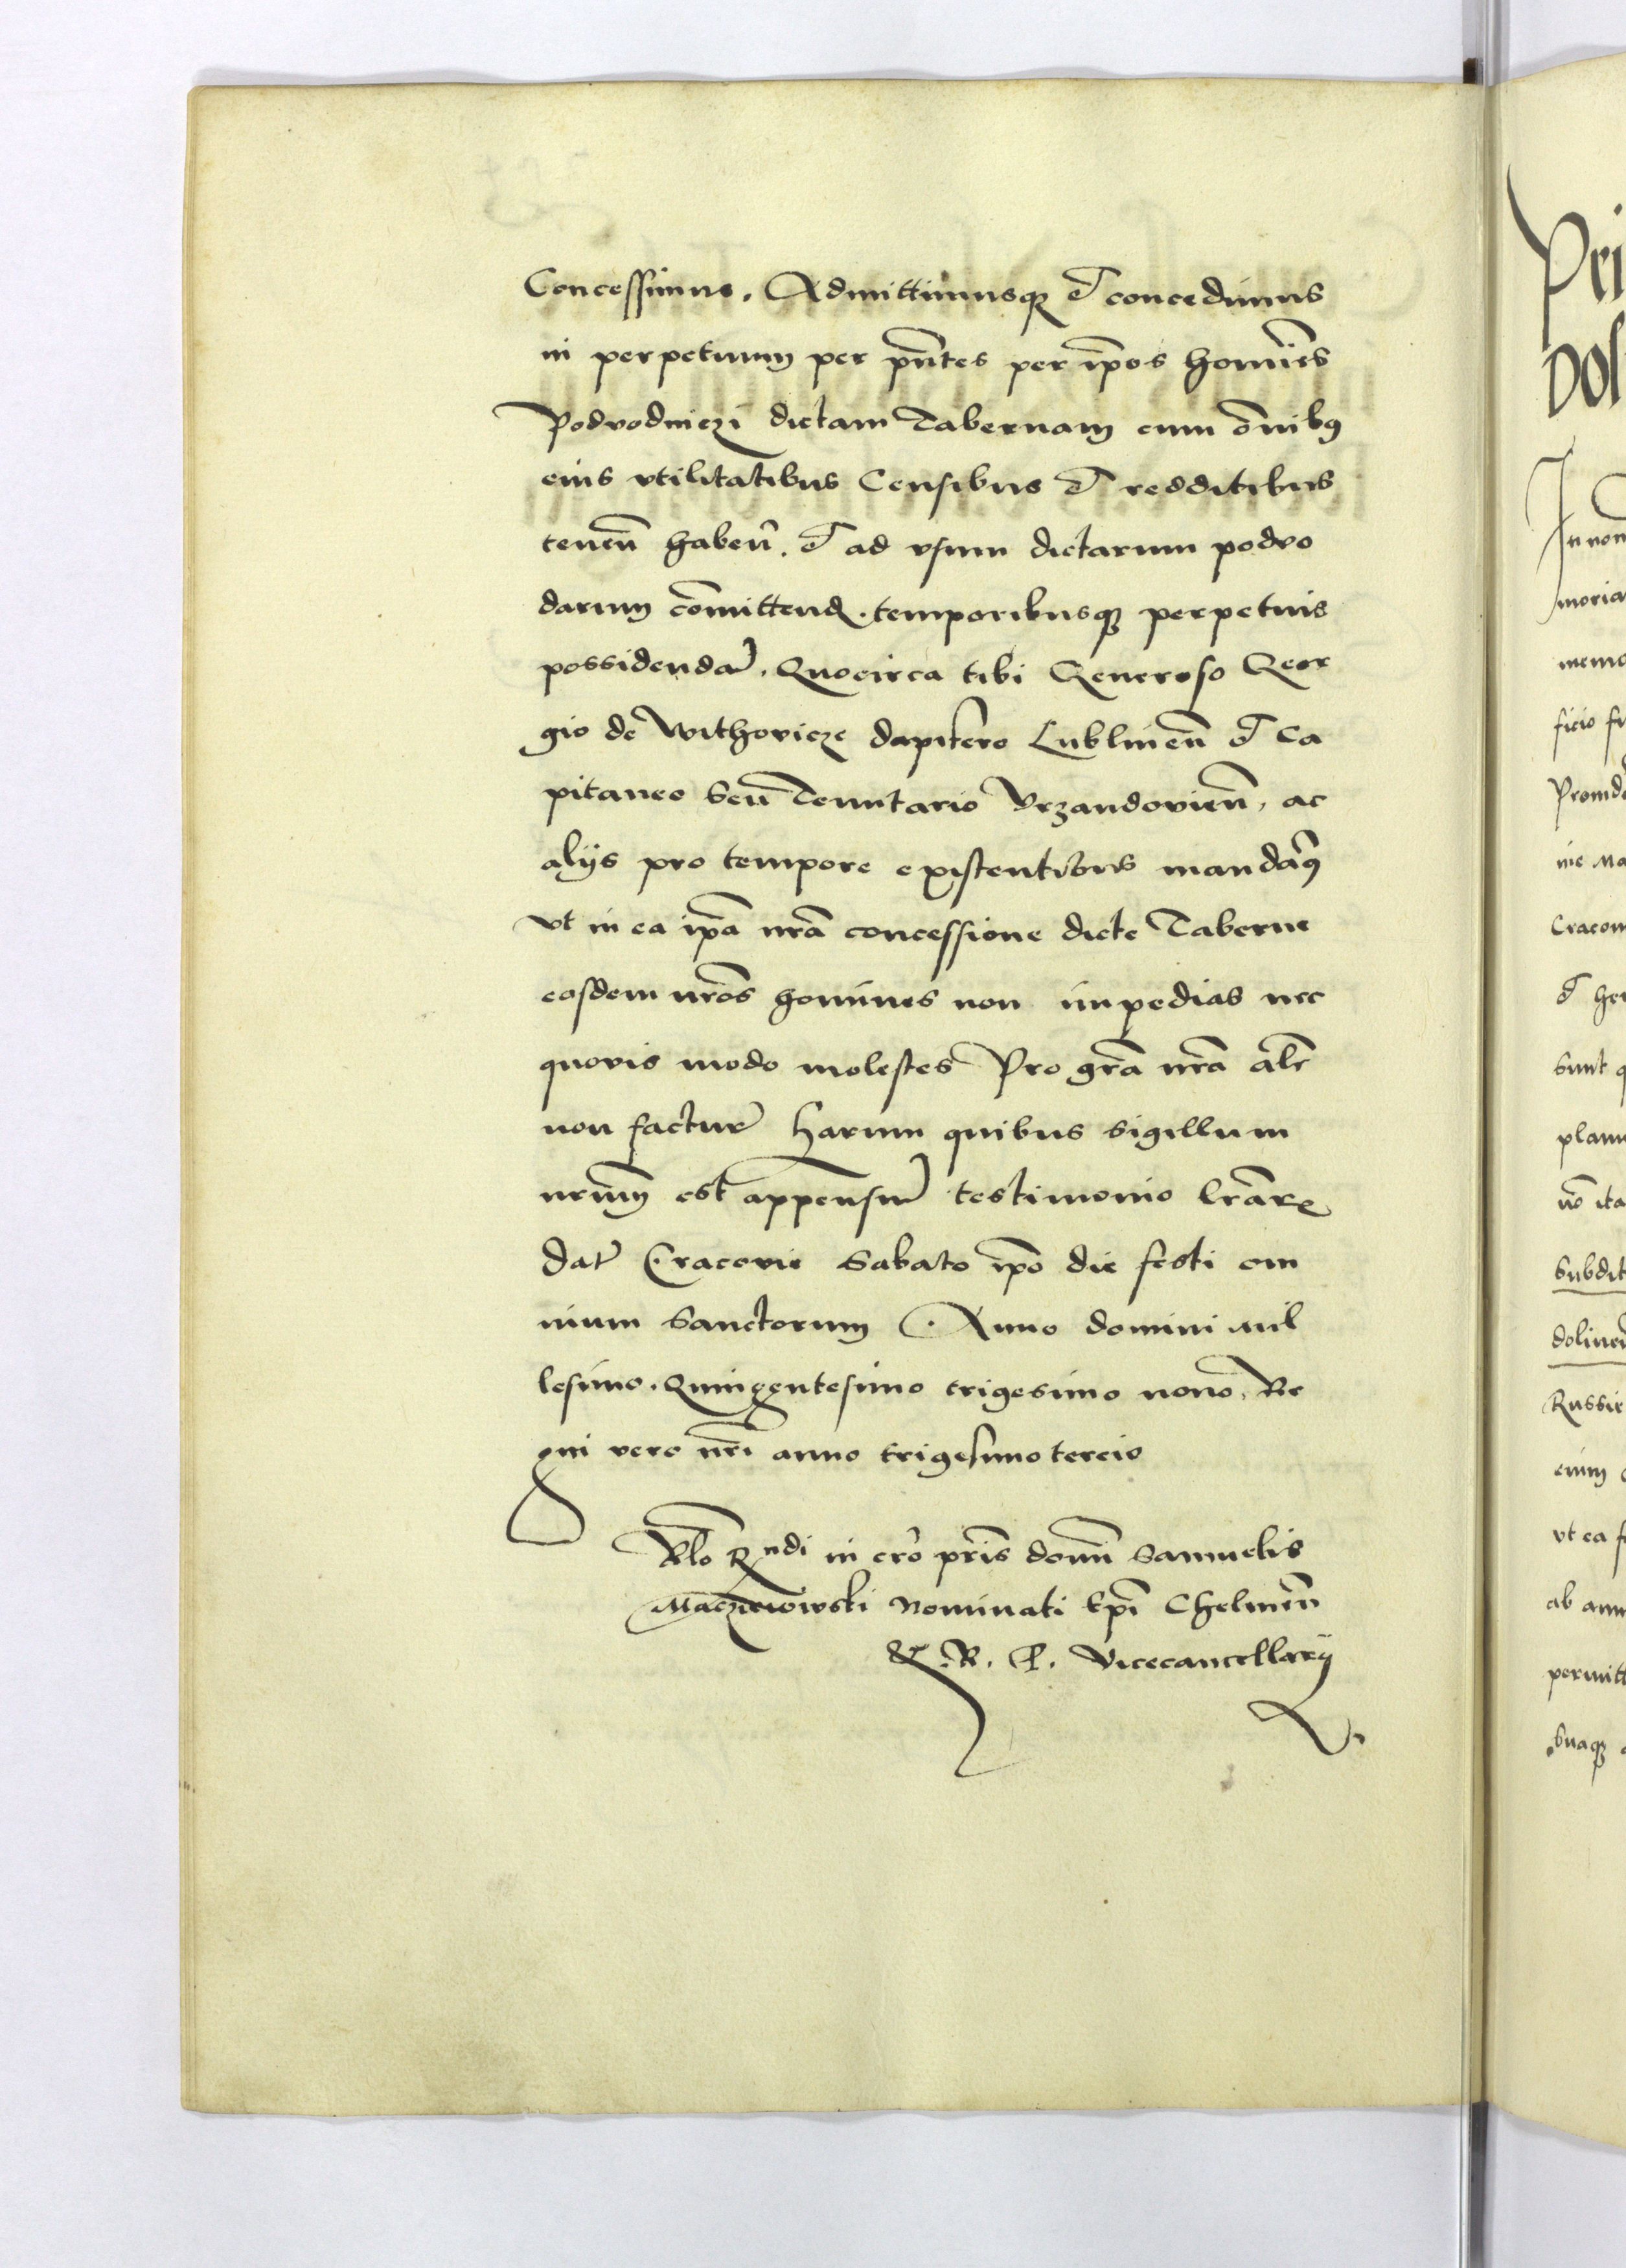 Concessimus. Admittimusq3 et concedimus
in perpetuum per pn̄tes per ip̄os homīes
Podvodniczi dictam Tabernam cum om̄ibꝯ
eius vtilitatibus Censibus et redditibus
tenen̄ haben̄. et ad vsum dictarum podvo
darum com̄ittend. temporibusq3 perpetuis
possidendam̄. Quocirca tibi Generoso Geor
gio de Withovicze dapifero Lublinen̄ et Ca
pitaneo seu Tenutario Vrzandovien̄, ac
alijs pro tempore existentibus mandam̄ꝯ
vt in ea ip̄a nr̄a concessione dicte Taberne
eosdem nr̄os homines non impedias nec
quovis modo molestes Pro gr̄a nr̄a alr̄
non factur̄ harum quibus sigillum
nr̄um est appensum̄ testimonio lr̄arꝝ
Dat̄ Cracovie Sabato ip̄o die festi om
nium Sanctorum Anno domini Mil
lesimo. Quingentesimo trigesimo nono, Re
gni vero nr̄i anno trigesimo tercio
Rlo Rndi in cr̄o pr̄is domī Samuelis
Macziewowski Nominati Ep̄i Chelmen̄
& R. P. Vicecancellarij
Pri
Dol
In nom
moria
memo
ficio
Cracov
et
sunt
plan
ita
Subdit
dolinen̄
Russie
enim
vt ea
ab ann
permitt